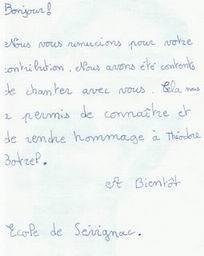 Bonjour!
Nous vous remercions pour votre
contribution. Nous avons été contents
de chanter avec vous. Cela nous
a permis de connaître et
de rendre hommage à Théodore
Botrel.
A Bientôt
Ecole de Sévignac.